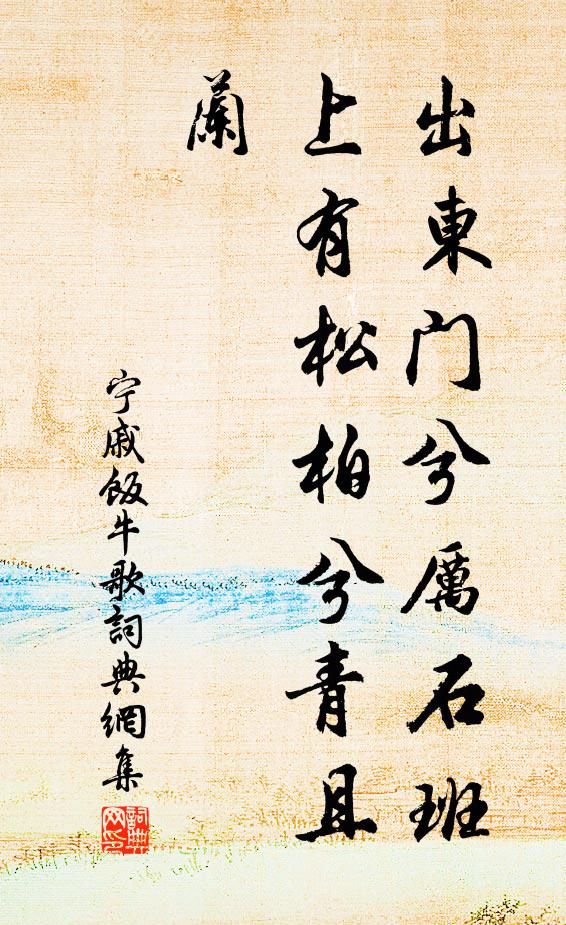 出東門兮厲石班
上有松柏兮青且
蘭
宁戚飯牛歌詞典網集
詞典
网